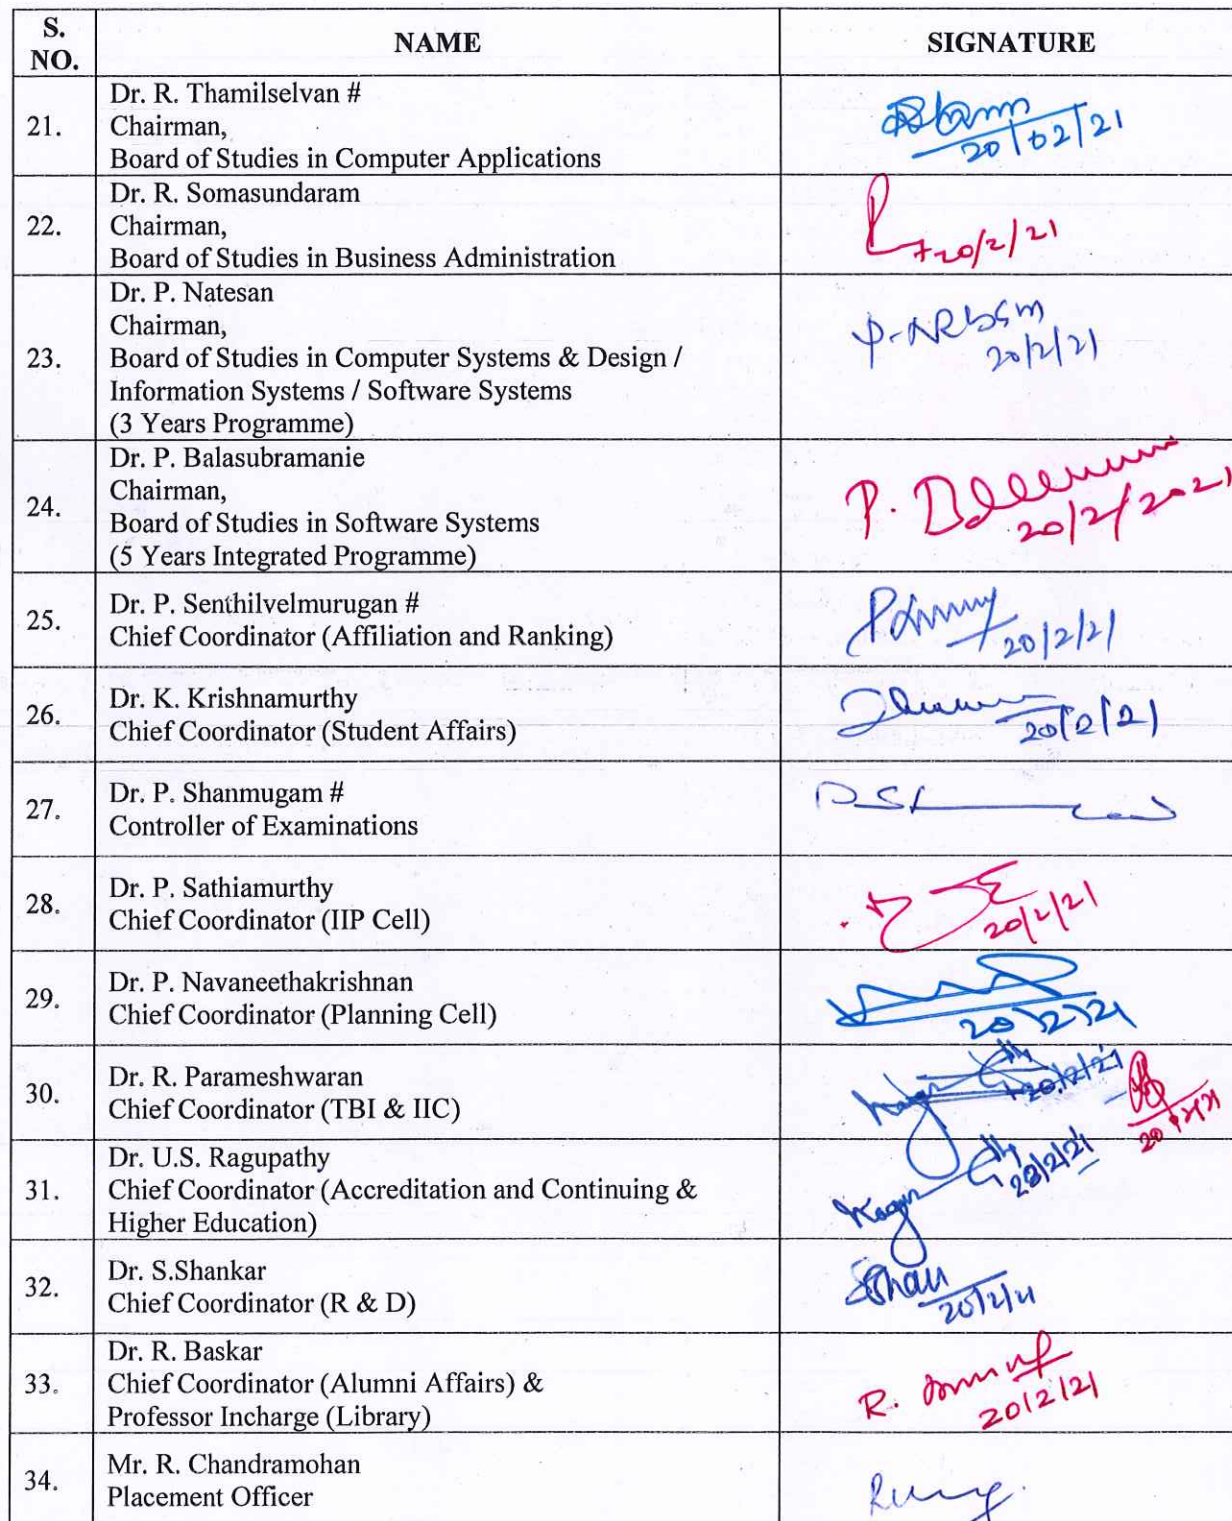 S. NO. NAME SIGNATURE
21. Dr. R. Thamilselvan #
Chairman,
Board of Studies in Computer Applications
20/02/21
22. Dr. R. Somasundaram
Chairman,
Board of Studies in Business Administration
20/2/21
23. Dr. P. Natesan
Chairman,
Board of Studies in Computer Systems & Design /
Information Systems / Software Systems
(3 Years Programme)
20/2/21
24. Dr. P. Balasubramanie
Chairman,
Board of Studies in Software Systems
(5 Years Integrated Programme)
P.
20/2/2021
25. Dr. P. Senthilvelmurugan #
Chief Coordinator (Affiliation and Ranking)
20/2/21
26. Dr. K. Krishnamurthy
Chief Coordinator (Student Affairs)
20/2/21
27. Dr. P. Shanmugam #
Controller of Examinations
28. Dr. P. Sathiamurthy
Chief Coordinator (IIP Cell)
20/2/21
29. Dr. P. Navaneethakrishnan
Chief Coordinator (Planning Cell)
20/2/21
30. Dr. R. Parameshwaran
Chief Coordinator (TBI & IIC)
20/2/21
20/2/21
31. Dr. U.S. Ragupathy
Chief Coordinator (Accreditation and Continuing &
Higher Education)
20/2/21
32. Dr. S.Shankar
Chief Coordinator (R & D)
20/2/21
33. Dr. R. Baskar
Chief Coordinator (Alumni Affairs) &
Professor Incharge (Library)
R.
20/2/21
34. Mr. R. Chandramohan
Placement Officer